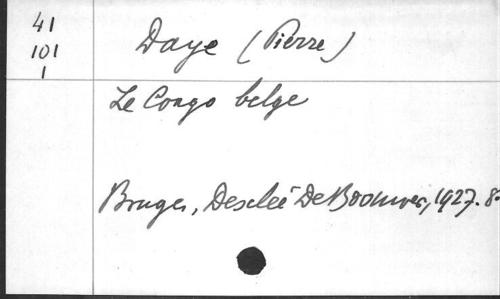 41
101
1
Daye (Pierre)
Le Congo belge
Bruges, Desclée De Brouwer, 1927. 8°